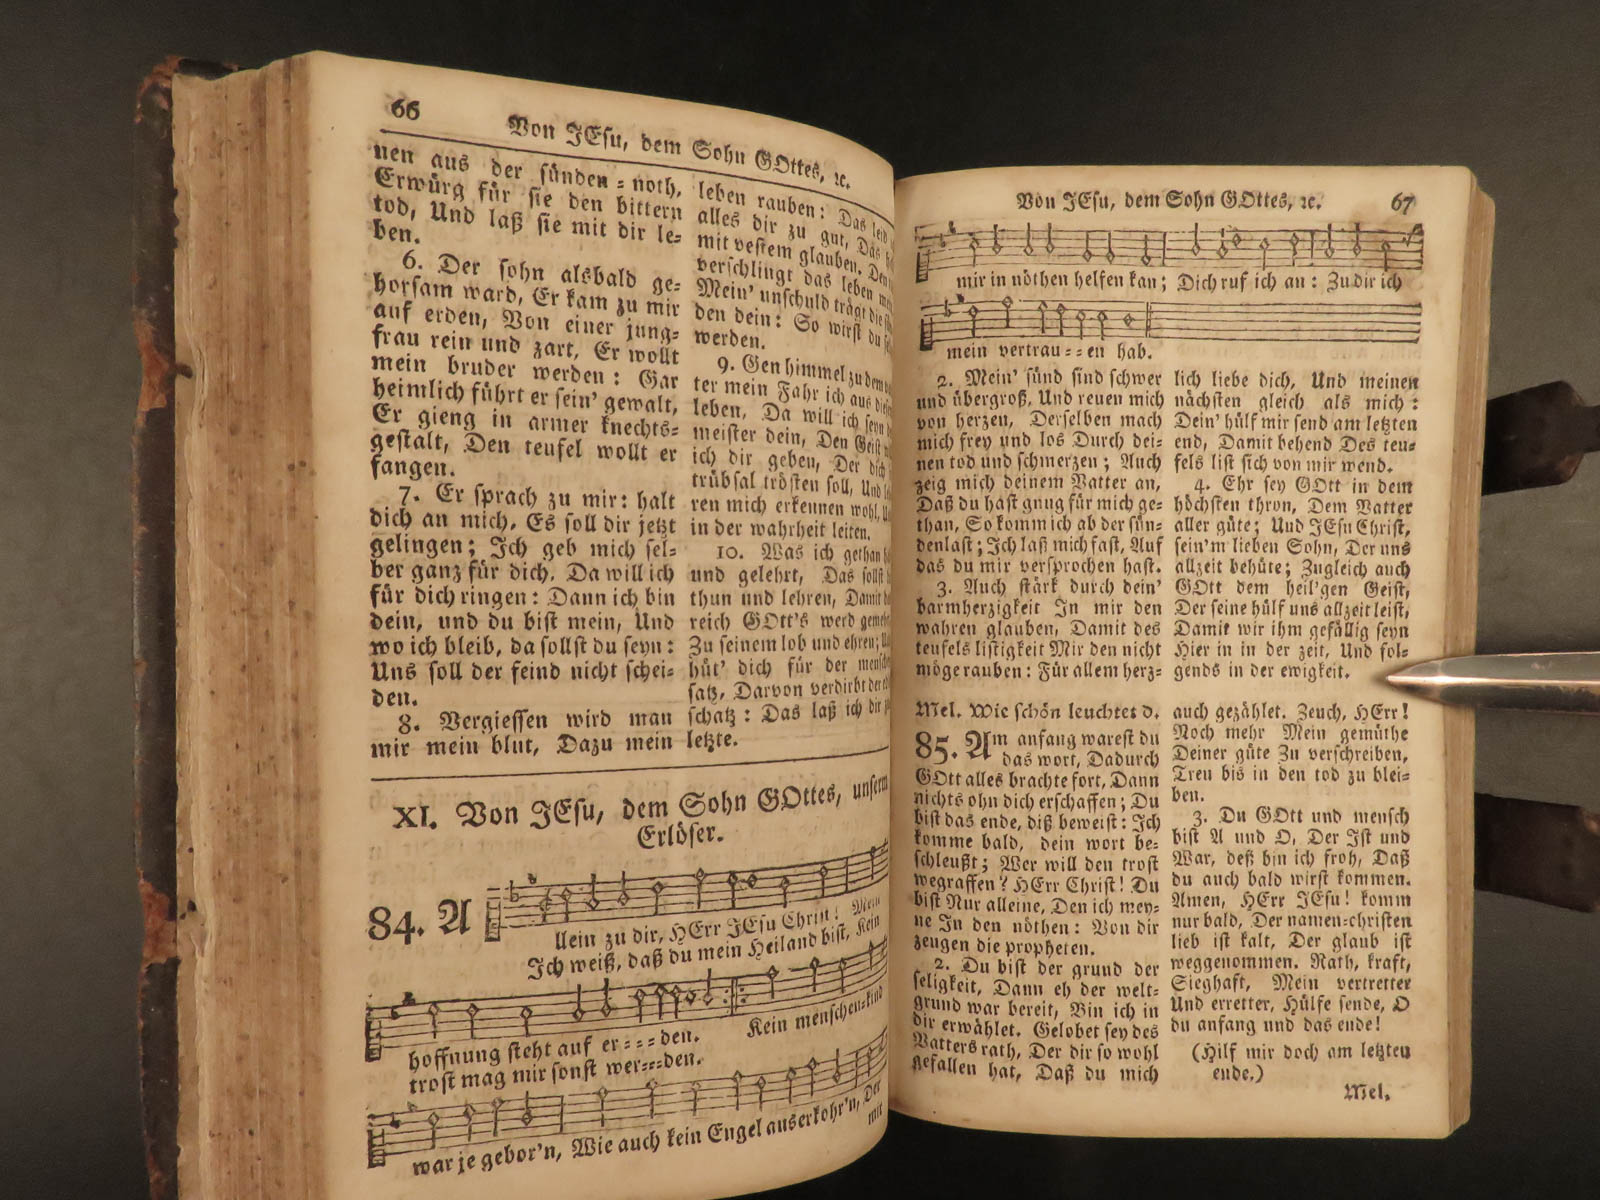 66
Von JEsu, dem Sohn GOttes, ꝛc.
nen aus der sünden = noth,
Erwürg für sie den bittern
tod, Und laß sie mit dir le=
ben.
6. Der sohn alsbald ge=
horsam ward, Er kam zu mir
auf erden, Von einer jung=
frau rein und zart, Er wollt
mein bruder werden: Gar
heimlich führt er sein' gewalt,
Er gieng in armer knechts=
gestalt, Den teufel wollt er
fangen.
7. Er sprach zu mir: halt
dich an mich, Es soll dir jetzt
gelingen; Ich geb mich sel=
ber ganz für dich, Da will ich
für dich ringen: Dann ich bin
dein, und du bist mein, Und
wo ich bleib, da sollst du seyn:
Uns soll der feind nicht schei=
den.
8. Vergiessen wird man
mir mein blut, Dazu mein
leben rauben: Das leid
alles dir zu gut, Das
mit vestem glauben. Den
verschlingt das leben
Mein' unschuld trägt die
den dein: So wirst du
werden.
9. Gen himmel zu dem
ter mein Fahr ich aus
leben, Da will ich seyn
meister dein, Den Geist
ich dir geben, Der dich
trübsal trösten soll, Und
ren mich erkennen wohl,
in der wahrheit leiten.
10. Was ich gethan
und gelehrt, Das sollst
thun und lehren, Damit
reich GOtt's werd
Zu seinem lob und ehren;
hüt' dich für der
satz, Darvon verdirbt der
schatz: Das laß ich dir
letzte.
XI. Von JEsu, dem Sohn GOttes, unserm
Erlöser.
84. A
llein zu dir, HErr JEsu Christ! Mein
Ich weiß, daß du mein Heiland bist, Kein
hoffnung steht auf er===den. Kein menschen=kind
trost mag mir sonst wer===den.
war je gebor'n, Wie auch kein Engel auserkohr'n, Der
mir
Von JEsu, dem Sohn GOttes, ꝛc. 67
mir in nöthen helfen kan; Dich ruf ich an: Zu dir ich
mein vertrau===en hab.
2. Mein' sünd sind schwer
und übergroß, Und reuen mich
von herzen, Derselben mach
mich frey und los Durch dei=
nen tod und schmerzen; Auch
zeig mich deinem Vatter an,
Daß du hast gnug für mich ge=
than, So komm ich ab der sün=
denlast; Ich laß mich fast, Auf
das du mir versprochen hast.
3. Auch stärk durch dein'
barmherzigkeit In mir den
wahren glauben, Damit des
teufels listigkeit Mir den nicht
möge rauben: Für allem herz=
lich liebe dich, Und meinen
nächsten gleich als mich:
Dein' hülf mir send am letzten
end, Damit behend Des teu=
fels list sich von mir wend.
4. Ehr sey GOtt in dem
höchsten thron, Dem Vatter
aller güte; Und JEsu Christ,
sein'm lieben Sohn, Der uns
allzeit behüte; Zugleich auch
GOtt dem heil'gen Geist,
Der seine hülf uns allzeit leist,
Damit wir ihm gefällig seyn
Hier in in der zeit, Und fol=
gends in der ewigkeit.
Mel. Wie schön leuchtet d.
85. Am anfang warest du
das wort, Dadurch
GOtt alles brachte fort, Dann
nichts ohn dich erschaffen; Du
bist das ende, diß beweist: Ich
komme bald, dein wort be=
schleußt; Wer will den trost
wegraffen? HErr Christ! Du
bist Nur alleine, Den ich mey=
ne In den nöthen: Von dir
zeugen die propheten.
2. Du bist der grund der
seligkeit, Dann eh der welt=
grund war bereit, Bin ich in
dir erwählet. Gelobet sey des
Vatters rath, Der dir so wohl
gefallen hat, Daß du mich
auch gezählet. Zeuch, HErr!
Noch mehr Mein gemüthe
Deiner güte Zu verschreiben,
Treu bis in den tod zu blei=
ben.
3. Du GOtt und mensch
bist A und O, Der Ist und
War, deß bin ich froh, Daß
du auch bald wirst kommen.
Amen, HErr JEsu! komm
nur bald, Der namen=christen
lieb ist kalt, Der glaub ist
weggenommen. Rath, kraft,
Sieghaft, Mein vertretter
Und erretter, Hülfe sende, O
du anfang und das ende!
(Hilf mir doch am letzten
ende.)
Mel.